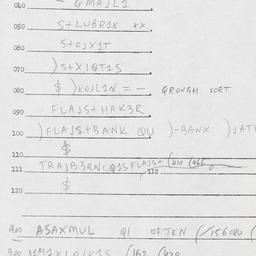 040 — QMAJL1
050 S+LUBR1X **
060 S+OJX1T
070 )S+XIQT1S
080 $ )KOJL1N = — QROUGH VORT
090 FLAJS+HAK3R
100 )FLAJS+BANK QU )-BANK )JATH
$
110
111 FLAJS+ (410 (466
112
$
120
900 ASAXMUL Q1 OFTEN (156086 (
900 (162 (420